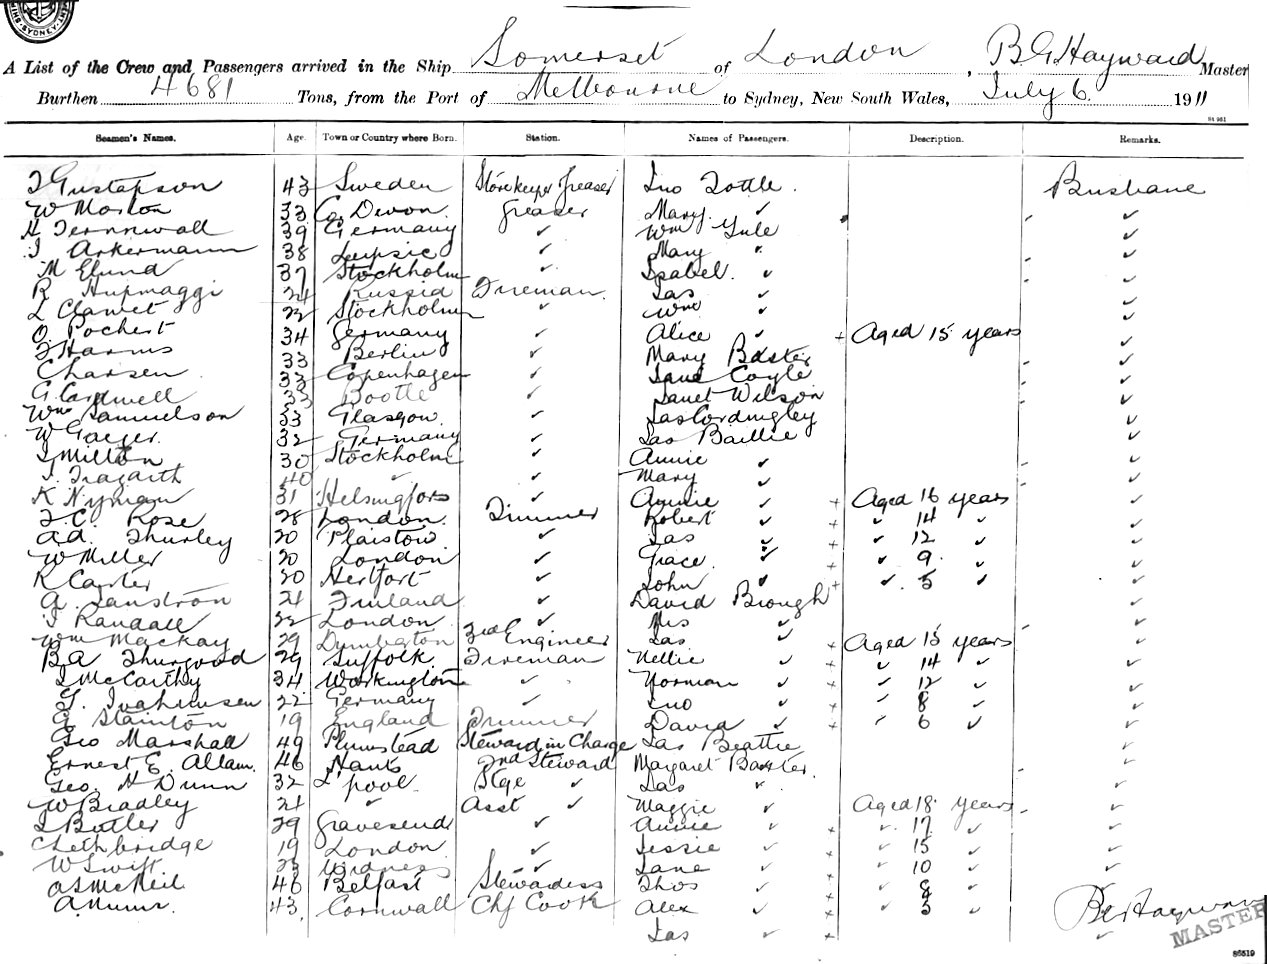 SYDNEY
A List of the Crew and Passengers arrived in the Ship Somerset of London, B G Hayward Master
Burthen 4681 Tons, from the Port of Melbourne to Sydney, New South Wales, July 6. 1911
84 951
Seamen's Names. Age. Town or Country where Born. Station. Names of Passengers. Description. Remarks.
Gustafson 43 Sweden Storekeeper Greaser Jno Tottle. Brisbane
W Morton 33 Co. Devon. Greaser Mary ✓ ✓
H 39 Germany ✓ Wm Yule ✓
Arkermann 38 Leipsic ✓ Mary ✓ ✓
M Elund 37 Stockholm ✓ Isabel. ✓ ✓
R Hupmaggi 24 Russia Fireman. Jas ✓ ✓
L 22 Stockholm ✓ Wm ✓ ✓
O. Pochert 34 Germany ✓ Alice ✓ + Aged 15 years ✓
F Harms 33 Berlin ✓ Mary Baxter ✓
33 Copenhagen ✓ Jane Coyle ✓
G. Cardwell 33 Bootle ✓ Janet Wilson ✓
Wm Samuelson 33 Glasgow. ✓ Jas Cordingley ✓
W Gaeger. 32 Germany ✓ Jas Baillie ✓
Milton 30 Stockholm ✓ Annie ✓ ✓
Tragarth 40 ✓ ✓ Mary ✓ ✓
K Nyman 31 Helsingfors ✓ Annie ✓ + Aged 16 years ✓
F. C. Rose 28 London. Trimmer Robert ✓ + ✓ 14 ✓ ✓
A.A. Thurley 20 Plaistow ✓ Jas ✓ + ✓ 12 ✓ ✓
W Miller 20 London ✓ Grace ✓ + ✓ 9 ✓ ✓
K Carter 20 Hertfort ✓ John ✓ + ✓ 5 ✓ ✓
G. Sanstron 21 Finland ✓ David Brough ✓
Randall 22 London. ✓ Mrs ✓ ✓
Wm Mackay 29 3rd Engineer Jas ✓ + Aged 15 years ✓
B A Thurgood 29 Suffolk Fireman Nellie ✓ + ✓ 14 ✓ ✓
McCarthy 34 Workington ✓ Norman ✓ + ✓ 12 ✓ ✓
22 Germany ✓ Jno ✓ + ✓ 8 ✓ ✓
G Stainton 19 England Trimmer David ✓ + ✓ 6 ✓ ✓
Geo Marshall 49 Plumstead Steward in Charge Jas Beattie ✓
Ernest E. Allam. 46 Hants 2nd Steward Margaret Baxter. ✓
Geo. H Dunn 32 L'pool. Stge ✓ Jas ✓ ✓
W Bradley 21 ✓ Asst ✓ Maggie ✓ Aged 18 years ✓
Butler 29 Gravesend ✓ Annie ✓ + ✓ 17 ✓ ✓
C Lethbridge 19 London ✓ Jessie ✓ + ✓ 15 ✓ ✓
W Swift 23 Widness ✓ Jane ✓ ✓ 10 ✓ ✓
McNeil 46 Belfast Stewardess Thos ✓ + ✓ 8 ✓
43 Cornwall Chf Cook Alex ✓ + ✓ 3 ✓ B G Hayward
Jas ✓ + ✓ MASTER
86519